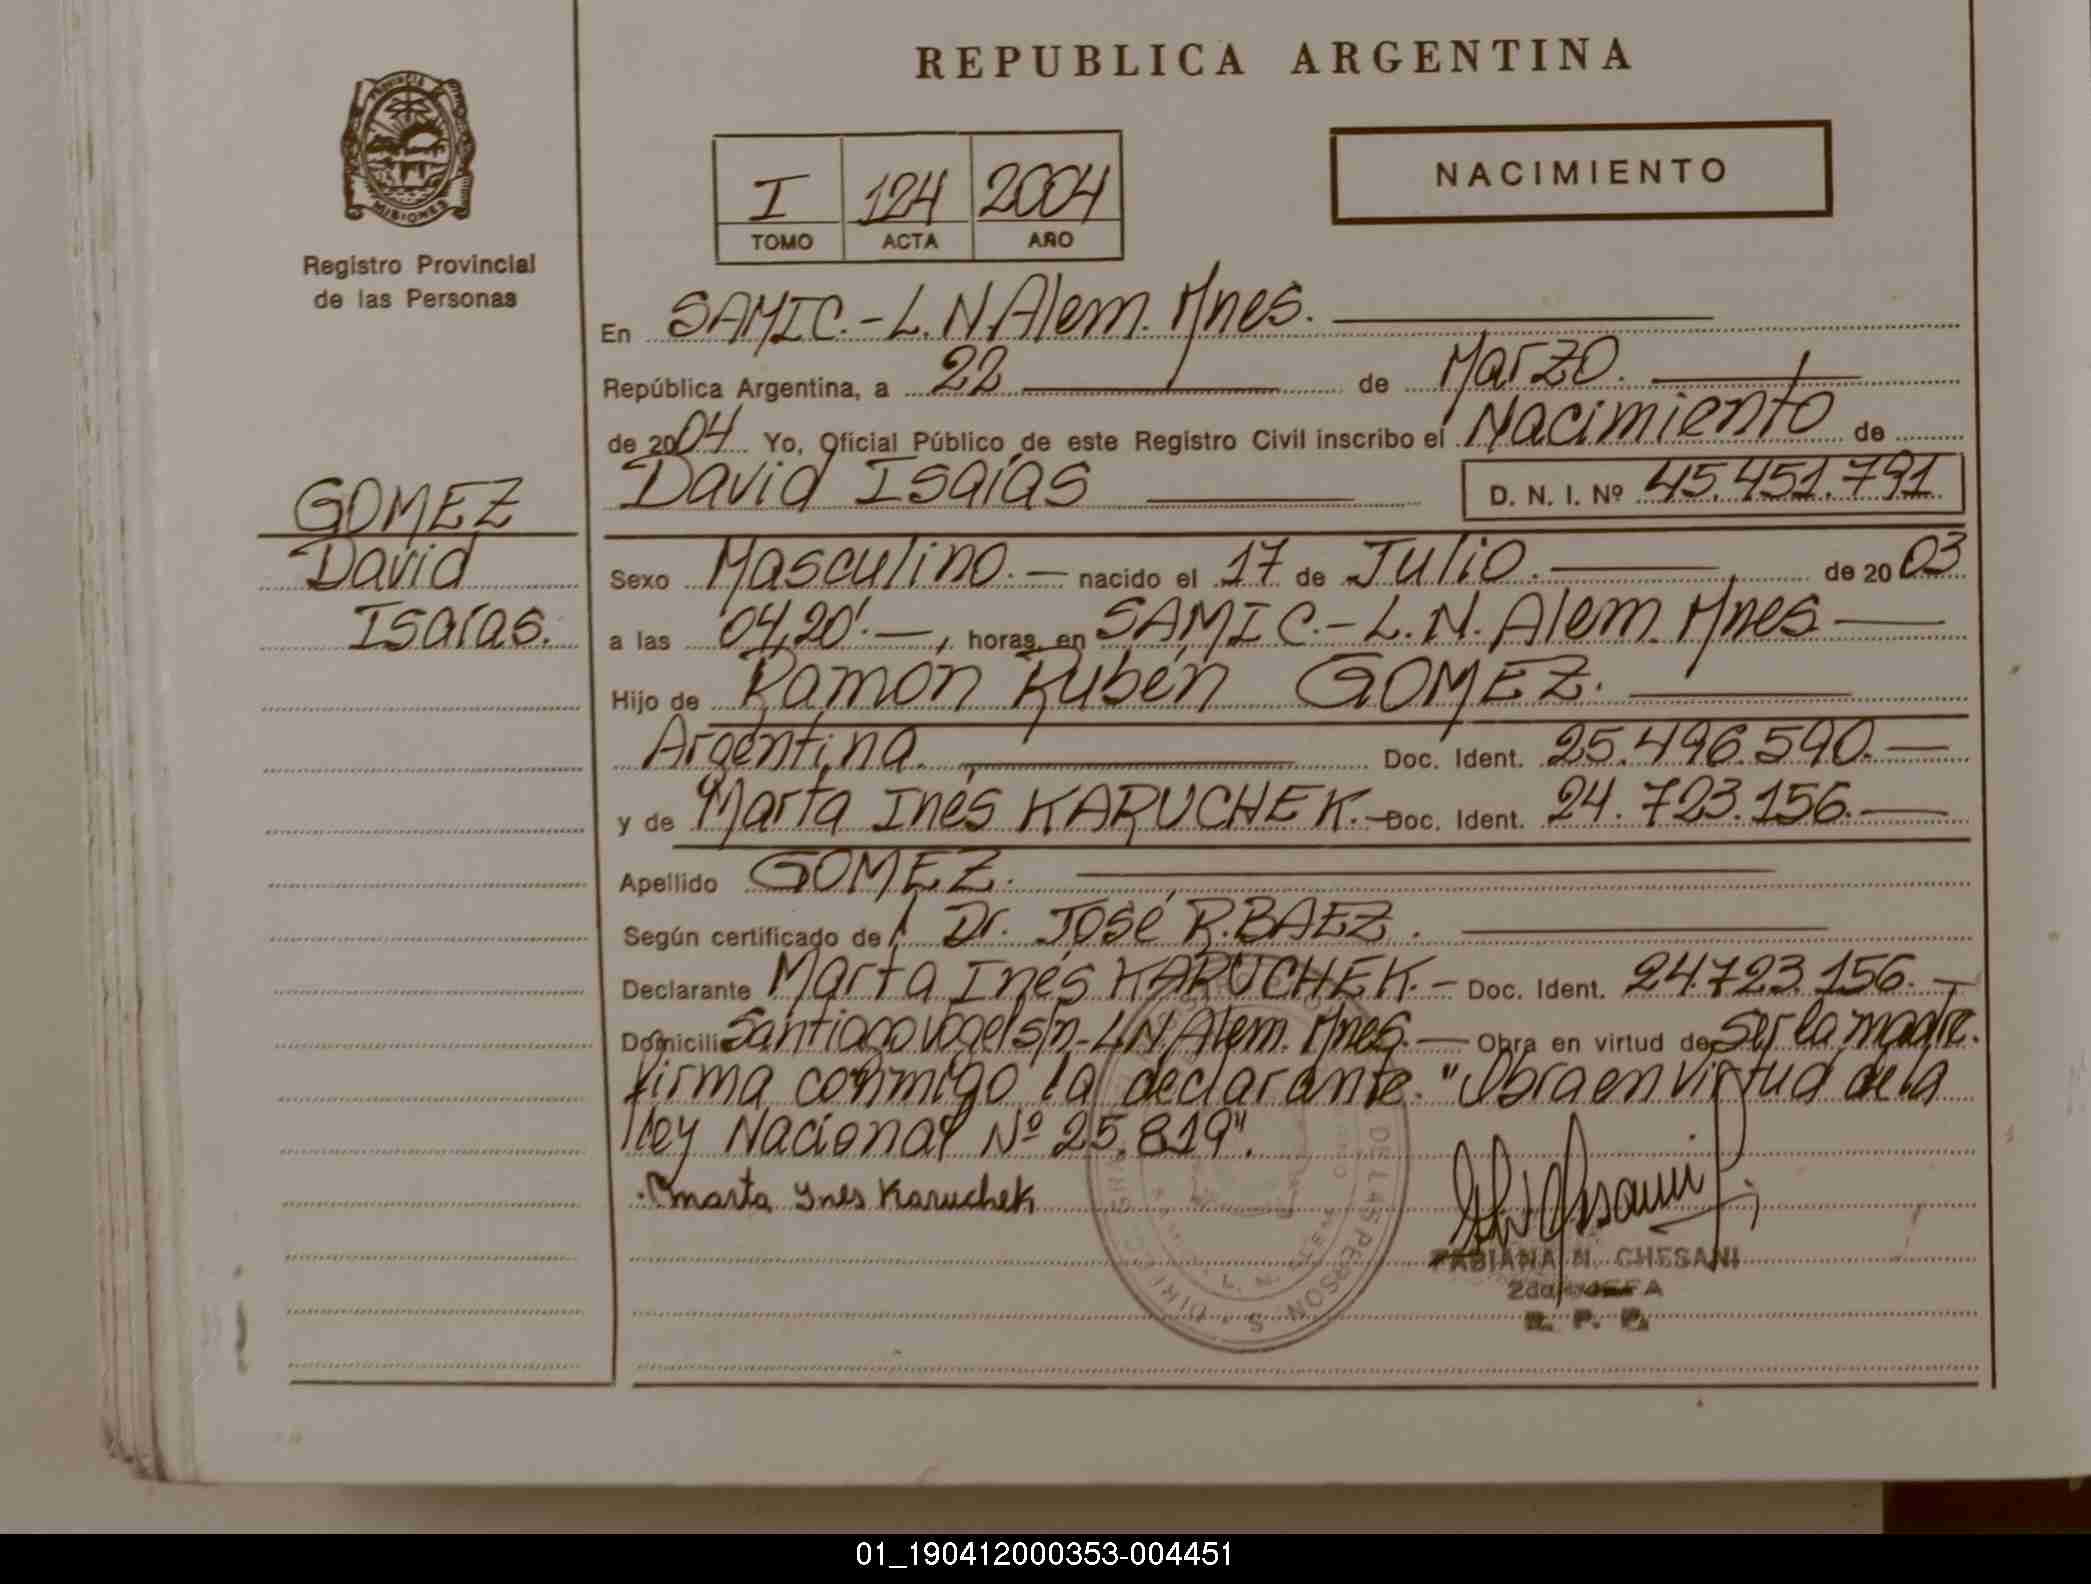 REPUBLICA ARGENTINA
PROVINCIA
MISIONES
Registro Provincial
de las Personas
I 124 2004
TOMO ACTA AÑO
NACIMIENTO
En SAMIC.-L.N.Alem. Mnes.
República Argentina, a 22 de Marzo.
de 2004 Yo, Oficial Público de este Registro Civil inscribo el Nacimiento de
David Isaías D. N. I. Nº 45.451.791
GOMEZ
David
Isaías.
Sexo Masculino.— nacido el 17 de Julio. de 2003
a las 04,20'.—, horas, en SAMIC.-L.N. Alem. Mnes
Hijo de Ramón Rubén GOMEZ.
Argentina. Doc. Ident. 25.496.590.—
y de Marta Inés KARUCHEK.- Doc. Ident. 24.723.156.—
Apellido GOMEZ.
Según certificado de Dr. José R.BAEZ.
Declarante Marta Inés KARUCHEK.- Doc. Ident. 24.723.156.—
Domicilio Santiago Vogel s/n.-L.N.Alem. Mnes.— Obra en virtud de ser la madre.
firma conmigo la declarante. "Obra en virtud de la
ley Nacional Nº 25.819".
Marta Ines Karuchek
DE LAS PERSONAS
FABIANA N. CHESANI
2da JEFA
R. P. P.
01_190412000353-004451